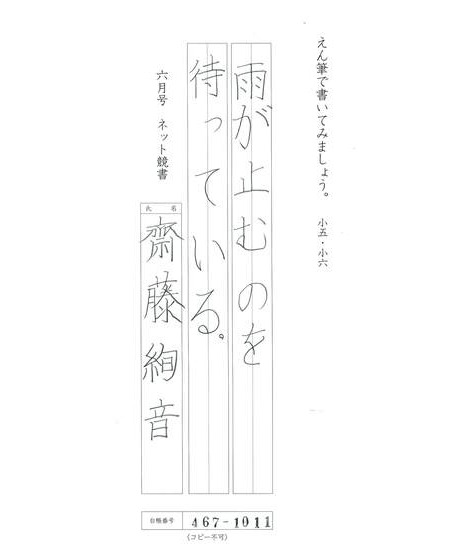 えん筆で書いてみましょう。 小五・小六
雨が止むのを
待っている。
六月号 ネット競書
氏名
齋藤絢音
台帳番号 467-1011
(コピー不可)